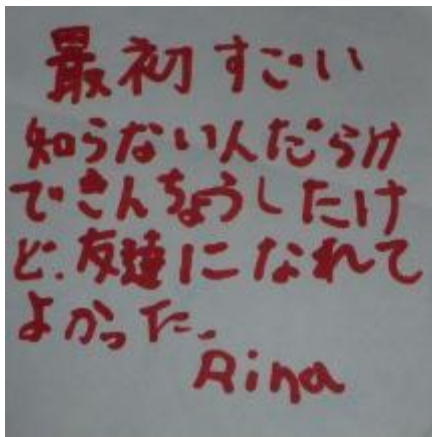 最初すごい
知らない人だらけ
できんちょうしたけ
ど、友達になれて
よかった。
Rina